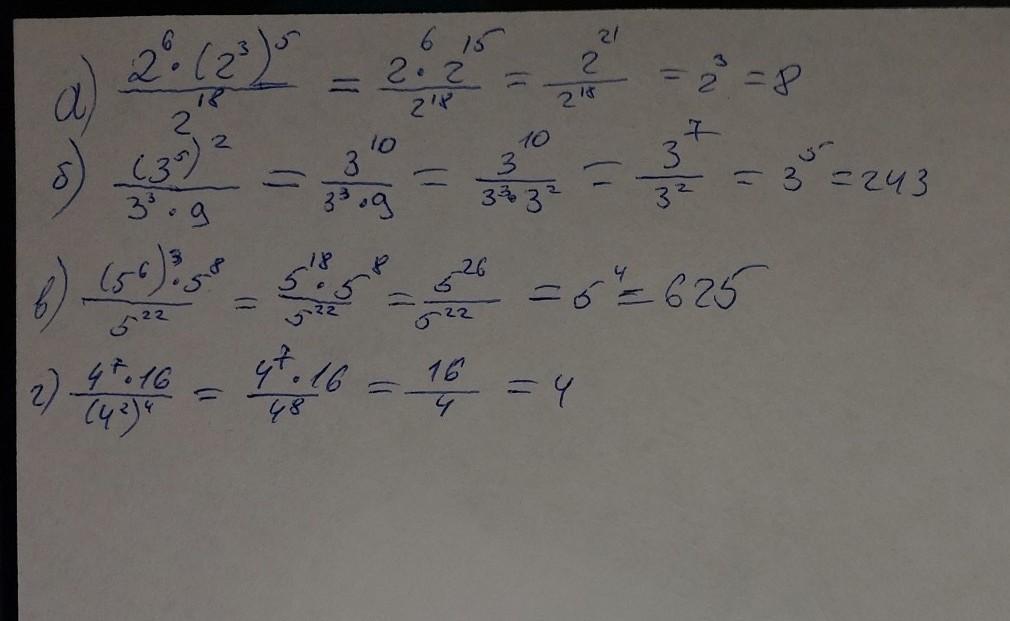 а) (2⁶ · (2³)⁵) / 2¹⁸ = (2⁶ · 2¹⁵) / 2¹⁸ = 2²¹ / 2¹⁸ = 2³ = 8
б) (3⁵)² / (3³ · 9) = 3¹⁰ / (3³ · 9) = 3¹⁰ / (3³ · 3²) = 3⁷ / 3² = 3⁵ = 243
в) ((5⁶)³ · 5⁸) / 5²² = (5¹⁸ · 5⁸) / 5²² = 5²⁶ / 5²² = 5⁴ = 625
г) (4⁷ · 16) / (4²)⁴ = (4⁷ · 16) / 4⁸ = 16 / 4 = 4